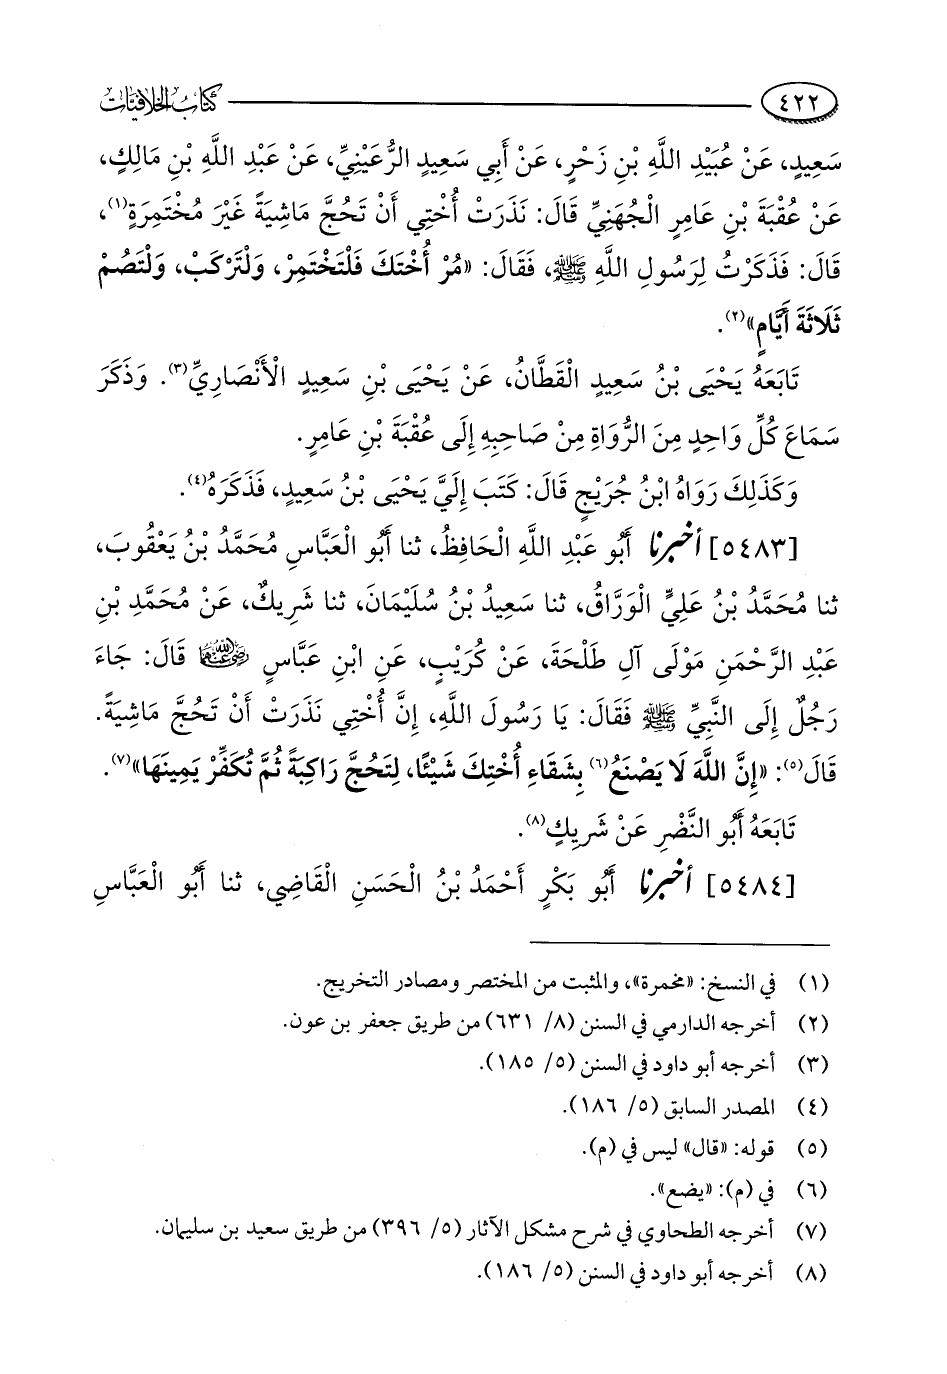 ٤٢٢ كتاب الخلافيات
سَعِيدٍ، عَنْ عُبَيْدِ اللَّهِ بْنِ زَحْرٍ، عَنْ أَبِي سَعِيدٍ الرُّعَيْنِيِّ، عَنْ عَبْدِ اللَّهِ بْنِ مَالِكٍ،
عَنْ عُقْبَةَ بْنِ عَامِرٍ الْجُهَنِيِّ قَالَ: نَذَرَتْ أُخْتِي أَنْ تَحُجَّ مَاشِيَةً غَيْرَ مُخْتَمِرَةٍ(١)،
قَالَ: فَذَكَرْتُ لِرَسُولِ اللَّهِ ﷺ، فَقَالَ: «مُرْ أُخْتَكَ فَلْتَخْتَمِرْ، وَلْتَرْكَبْ، وَلْتَصُمْ
ثَلَاثَةَ أَيَّامٍ»(٢).
تَابَعَهُ يَحْيَى بْنُ سَعِيدٍ الْقَطَّانُ، عَنْ يَحْيَى بْنِ سَعِيدٍ الْأَنْصَارِيِّ(٣). وَذَكَرَ
سَمَاعَ كُلِّ وَاحِدٍ مِنَ الرُّوَاةِ مِنْ صَاحِبِهِ إِلَى عُقْبَةَ بْنِ عَامِرٍ.
وَكَذَلِكَ رَوَاهُ ابْنُ جُرَيْجٍ قَالَ: كَتَبَ إِلَيَّ يَحْيَى بْنُ سَعِيدٍ، فَذَكَرَهُ(٤).
[٥٤٨٣] أخبرنا أَبُو عَبْدِ اللَّهِ الْحَافِظُ، ثنا أَبُو الْعَبَّاسِ مُحَمَّدُ بْنُ يَعْقُوبَ،
ثنا مُحَمَّدُ بْنُ عَلِيٍّ الْوَرَّاقُ، ثنا سَعِيدُ بْنُ سُلَيْمَانَ، ثنا شَرِيكٌ، عَنْ مُحَمَّدِ بْنِ
عَبْدِ الرَّحْمَنِ مَوْلَى آلِ طَلْحَةَ، عَنْ كُرَيْبٍ، عَنِ ابْنِ عَبَّاسٍ رضي الله عنهما قَالَ: جَاءَ
رَجُلٌ إِلَى النَّبِيِّ ﷺ فَقَالَ: يَا رَسُولَ اللَّهِ، إِنَّ أُخْتِي نَذَرَتْ أَنْ تَحُجَّ مَاشِيَةً.
قَالَ(٥): «إِنَّ اللَّهَ لَا يَصْنَعُ(٦) بِشَقَاءِ أُخْتِكَ شَيْئًا، لِتَحُجَّ رَاكِبَةً ثُمَّ تُكَفِّرْ يَمِينَهَا»(٧).
تَابَعَهُ أَبُو النَّضْرِ عَنْ شَرِيكٍ(٨).
[٥٤٨٤] أخبرنا أَبُو بَكْرٍ أَحْمَدُ بْنُ الْحَسَنِ الْقَاضِي، ثنا أَبُو الْعَبَّاسِ
(١) في النسخ: «مخمرة»، والمثبت من المختصر ومصادر التخريج.
(٢) أخرجه الدارمي في السنن (٨/ ٦٣١) من طريق جعفر بن عون.
(٣) أخرجه أبو داود في السنن (٥/ ١٨٥).
(٤) المصدر السابق (٥/ ١٨٦).
(٥) قوله: «قال» ليس في (م).
(٦) في (م): «يضع».
(٧) أخرجه الطحاوي في شرح مشكل الآثار (٥/ ٣٩٦) من طريق سعيد بن سليمان.
(٨) أخرجه أبو داود في السنن (٥/ ١٨٦).